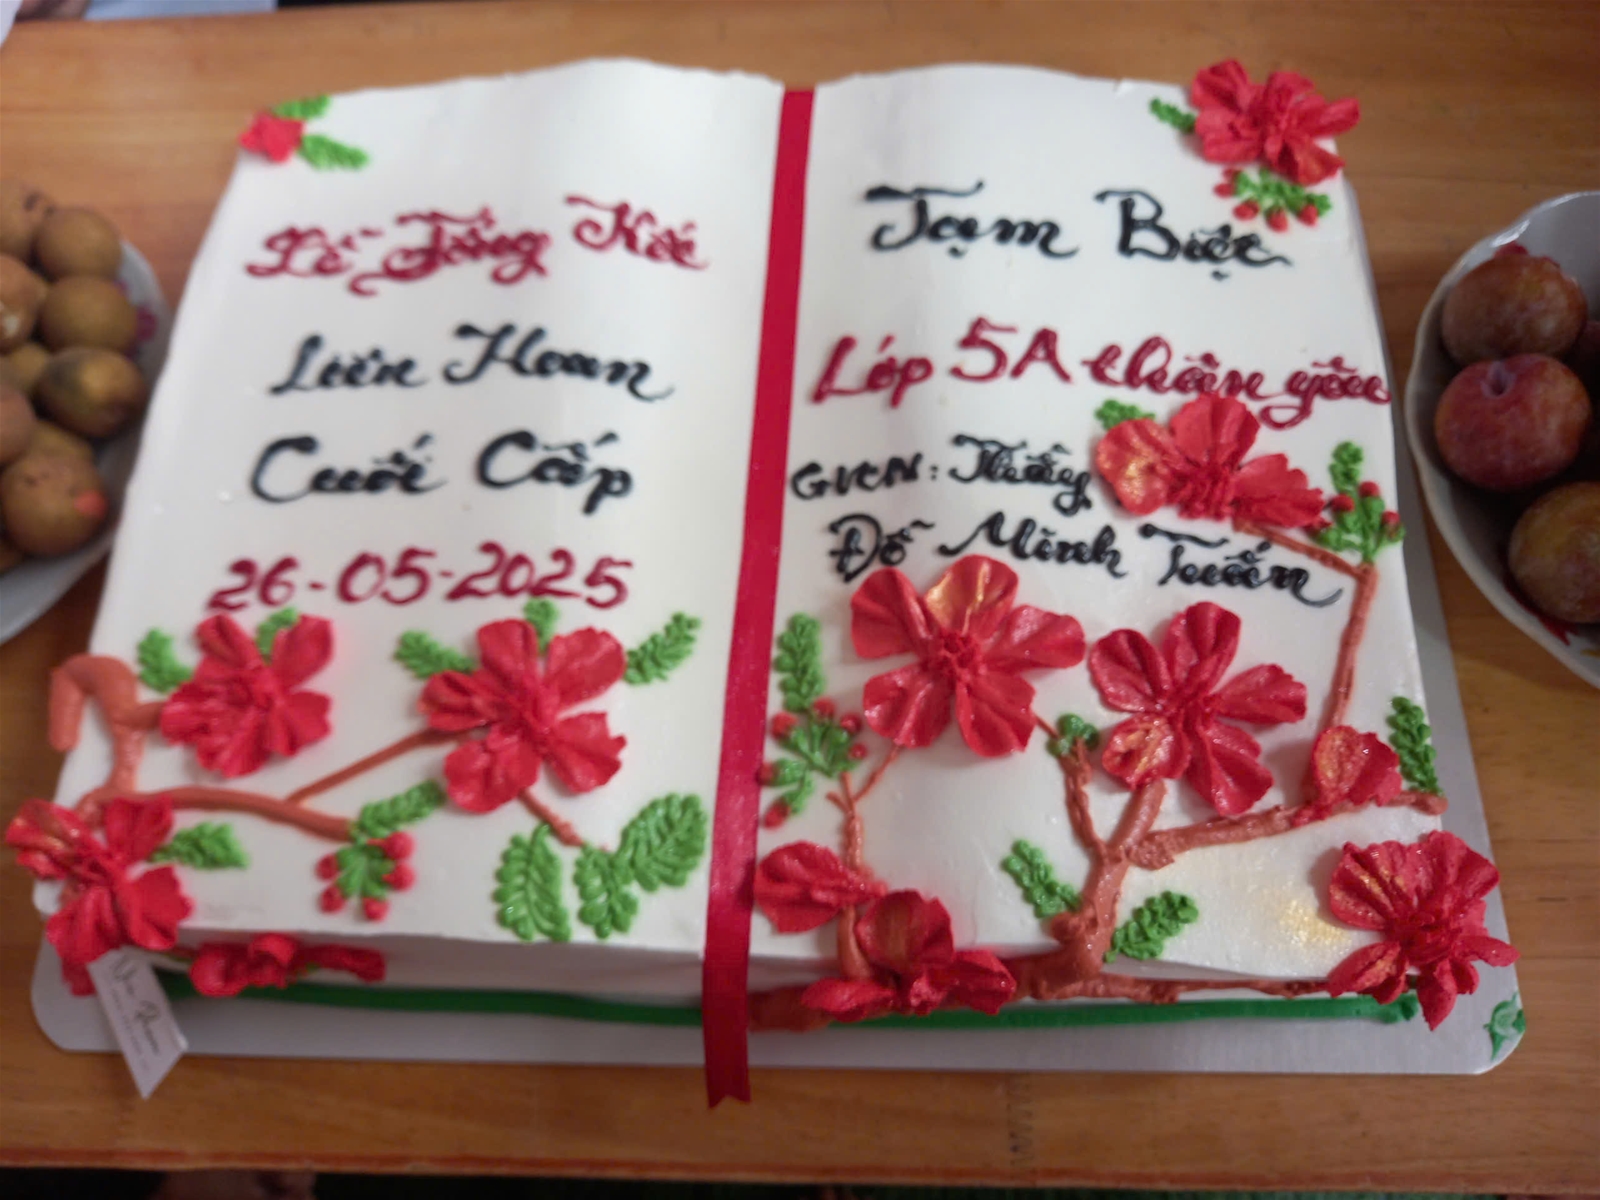 Lễ Tổng Kết
Liên Hoan
Cuối Cấp
26-05-2025
Tạm Biệt
Lớp 5A thân yêu
GVCN: Thầy
Đỗ Minh Tuấn